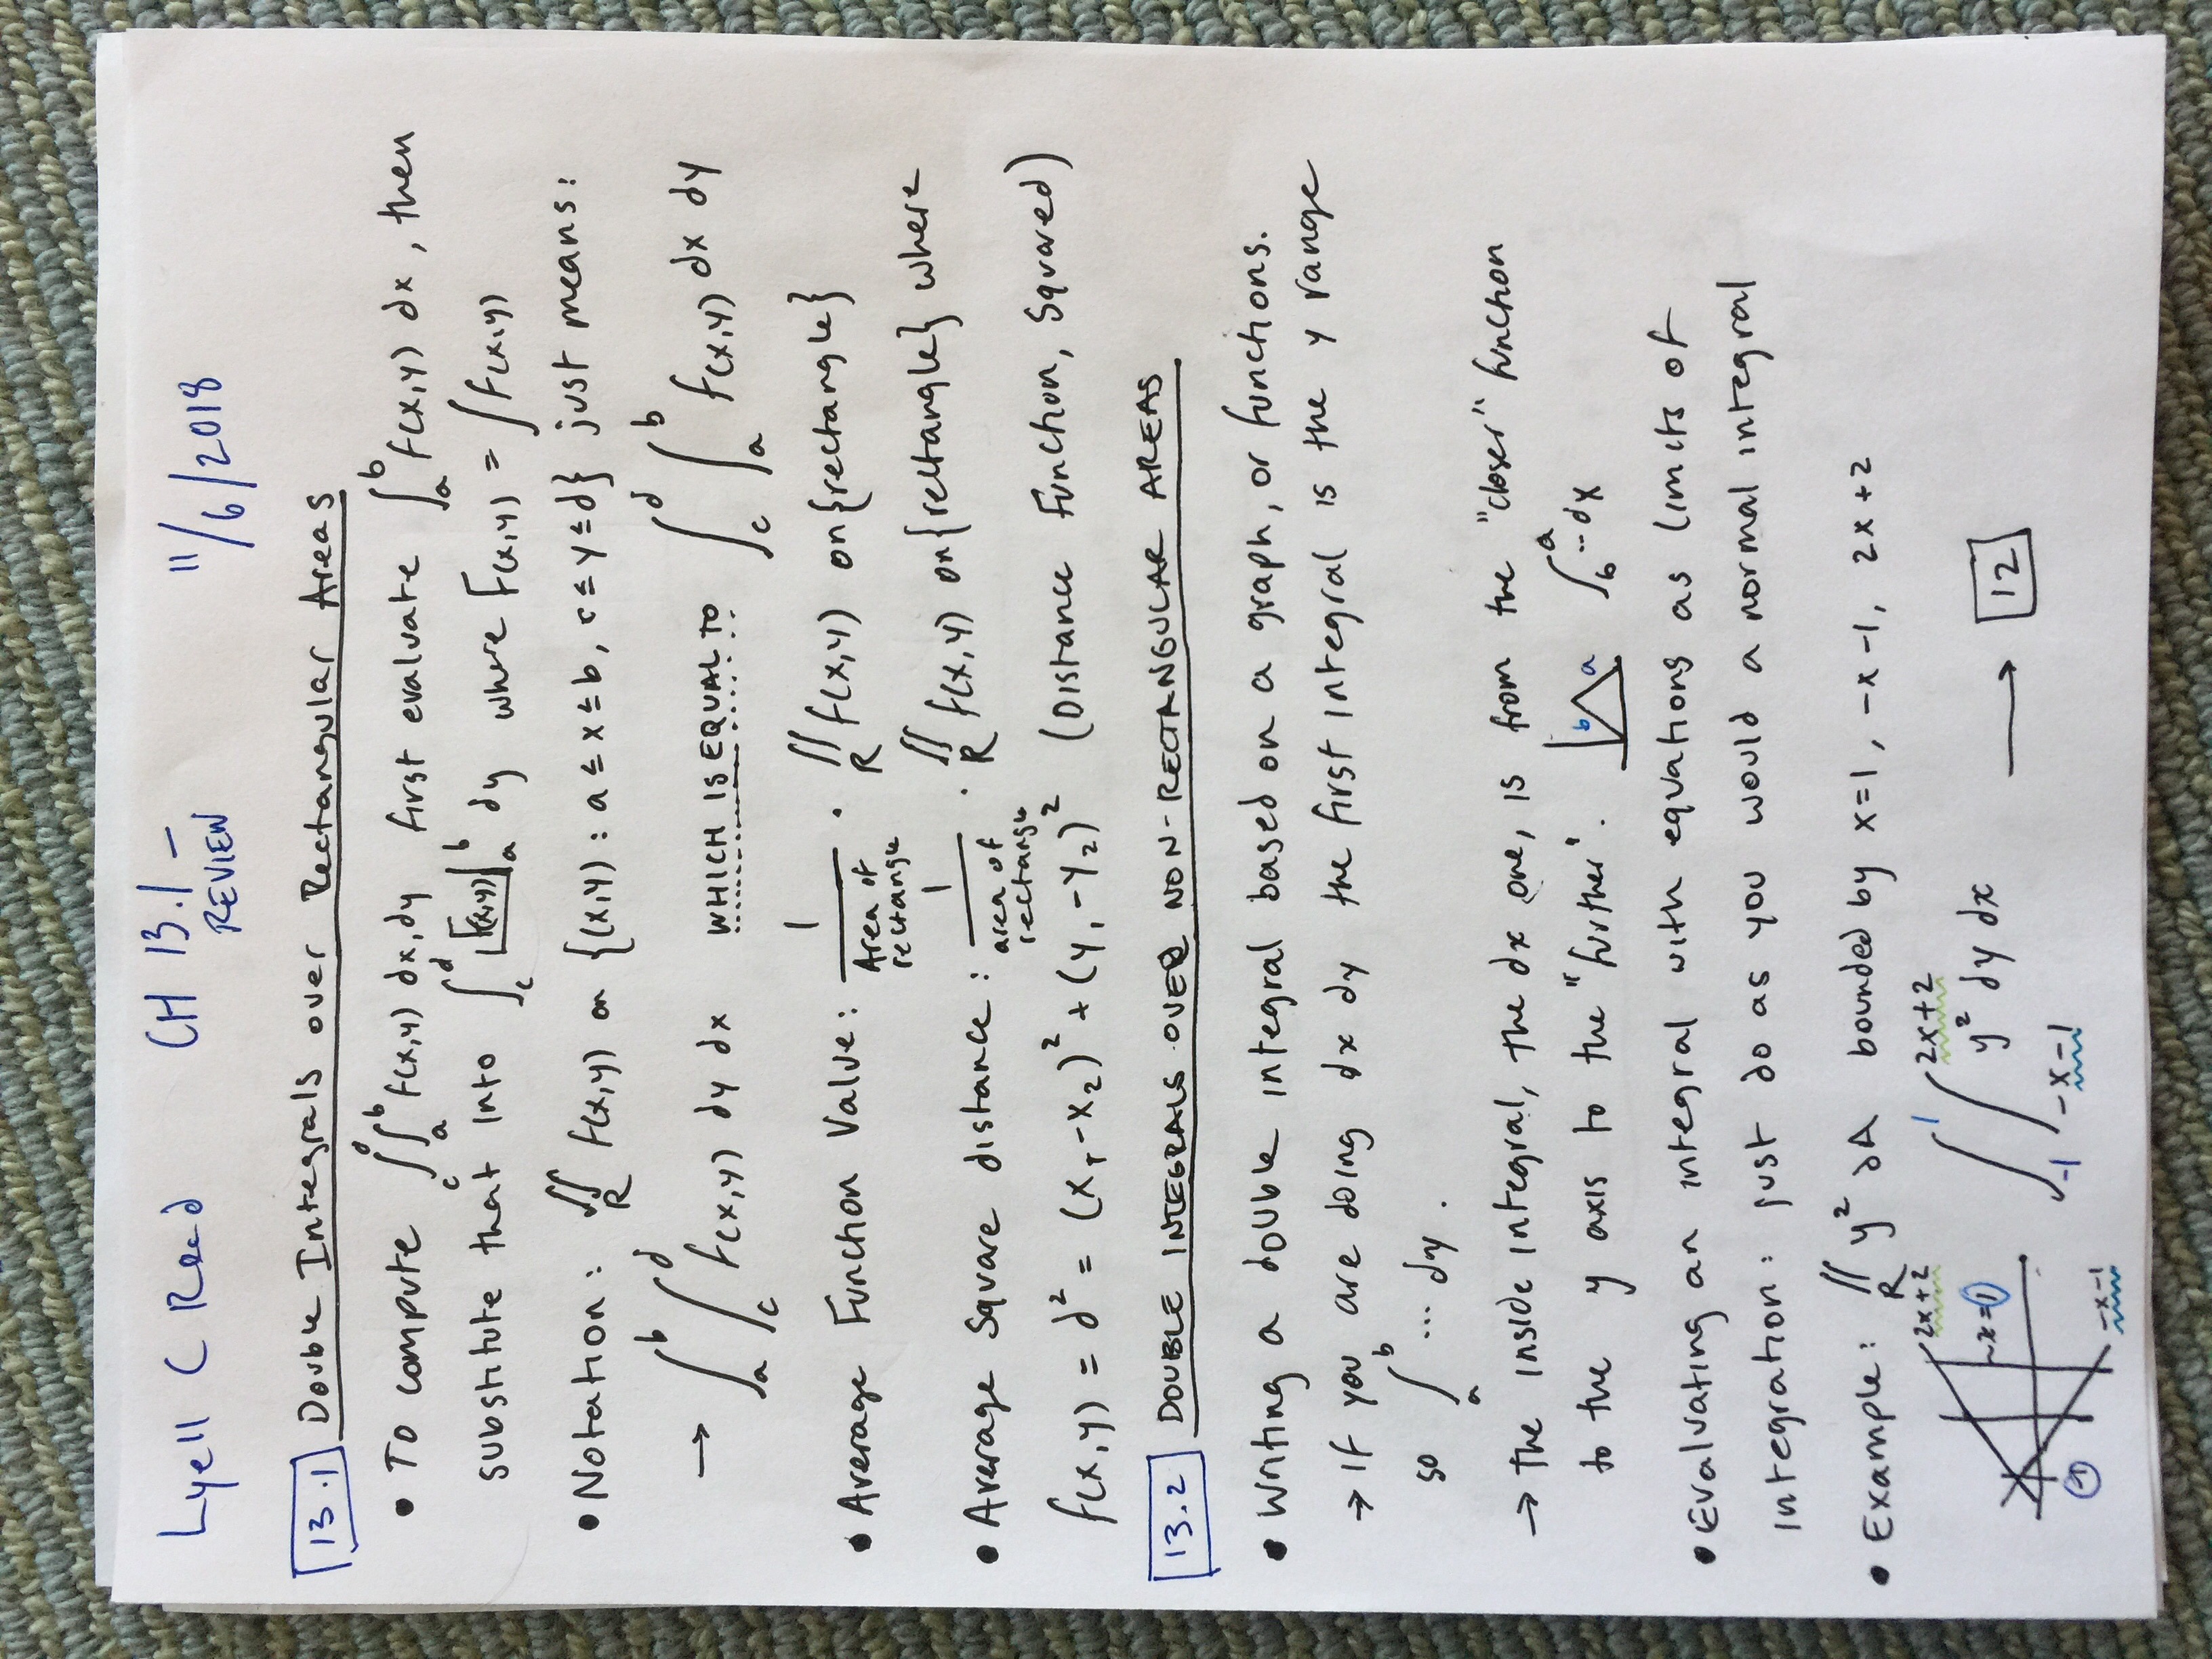 Lyell C Read CH 13.1 – 11/6/2018
REVIEW
13.1 Double Integrals over Rectangular Areas
• To compute ∫_c^d ∫_a^b f(x,y) dx, dy first evaluate ∫_a^b f(x,y) dx, then
substitute that into ∫_c^d F(x,y)|_a^b dy where F(x,y) = ∫f(x,y)
• Notation: ∬_R f(x,y) on {(x,y) : a ≤ x ≤ b, c ≤ y ≤ d} just means:
→ ∫_a^b ∫_c^d f(x,y) dy dx WHICH IS EQUAL TO ∫_c^d ∫_a^b f(x,y) dx dy
• Average Function Value: 1/(Area of rectangle) · ∬_R f(x,y) on {rectangle}
• Average Square distance: 1/(area of rectangle) · ∬_R f(x,y) on {rectangle} where
f(x,y) = d² = (x₁-x₂)² + (y₁-y₂)² (Distance Function, Squared)
13.2 DOUBLE INTEGRALS OVER NON-RECTANGULAR AREAS
• Writing a double integral based on a graph, or functions.
→ If you are doing dx dy the first integral is the y range
so ∫_a^b ... dy.
→ The inside integral, the dx one, is from the "closer" function
to the y axis to the "further". b a ∫_b^a ... dx
• Evaluating an integral with equations as limits of
integration: just do as you would a normal integral
• Example: ∬_R y² dA bounded by x=1, -x-1, 2x+2
2x+2 x=1 -1 -x-1 ∫_-1^1 ∫_-x-1^2x+2 y² dy dx → 12